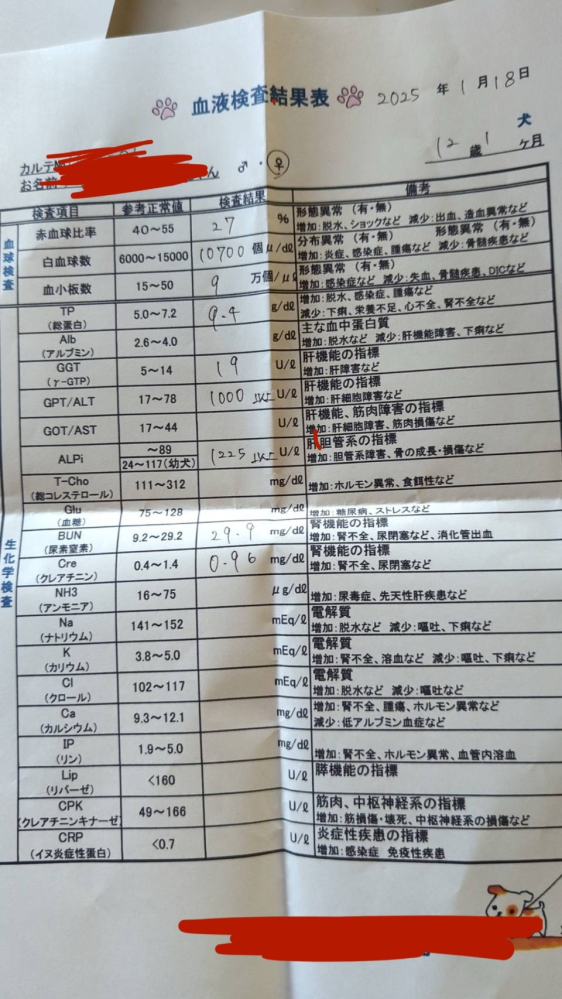 血液検査結果表
2025 年 1 月 18 日
犬
12 歳 1 ヶ月
カルテ
お名前
ん ♂ ・ ♀
検査項目 参考正常値 検査結果 備考
血球検査
赤血球比率 40~55 27 % 形態異常 (有・無)
増加:脱水、ショックなど 減少:出血、造血異常など
白血球数 6000~15000 10700 個μ/dℓ 分布異常 (有・無) 形態異常 (有・無)
増加:炎症、感染症、腫瘍など 減少:骨髄疾患など
血小板数 15~50 9 万個/μℓ 形態異常 (有・無)
増加:感染症など 減少:失血、骨髄疾患、DICなど
生化学検査
TP
(総蛋白) 5.0~7.2 9.4 g/dℓ 増加:脱水、感染症、腫瘍など
減少:下痢、栄養不足、心不全、腎不全など
Alb
(アルブミン) 2.6~4.0 g/dℓ 主な血中蛋白質
増加:脱水など 減少:肝機能障害、下痢など
GGT
(γ-GTP) 5~14 19 U/ℓ 肝機能の指標
増加:肝障害など
GPT/ALT 17~78 1000 以上 U/ℓ 肝機能の指標
増加:肝細胞障害など
GOT/AST 17~44 U/ℓ 肝機能、筋肉障害の指標
増加:肝細胞障害、筋肉損傷など
ALPi ~89
24~117(幼犬) 1225 以上 U/ℓ 肝胆管系の指標
増加:胆管系障害、骨の成長・損傷など
T-Cho
(総コレステロール) 111~312 mg/dℓ 増加:ホルモン異常、食餌性など
Glu
(血糖) 75~128 mg/dℓ 増加:糖尿病、ストレスなど
BUN
(尿素窒素) 9.2~29.2 29.9 mg/dℓ 腎機能の指標
増加:腎不全、尿閉塞など、消化管出血
Cre
(クレアチニン) 0.4~1.4 0.96 mg/dℓ 腎機能の指標
増加:腎不全、尿閉塞など
NH3
(アンモニア) 16~75 μg/dℓ 増加:尿毒症、先天性肝疾患など
Na
(ナトリウム) 141~152 mEq/ℓ 電解質
増加:脱水など 減少:嘔吐、下痢など
K
(カリウム) 3.8~5.0 mEq/ℓ 電解質
増加:腎不全、溶血など 減少:嘔吐、下痢など
Cl
(クロール) 102~117 mEq/ℓ 電解質
増加:脱水など 減少:嘔吐など
Ca
(カルシウム) 9.3~12.1 mg/dℓ 増加:腎不全、腫瘍、ホルモン異常など
減少:低アルブミン血症など
IP
(リン) 1.9~5.0 mg/dℓ 増加:腎不全、ホルモン異常、血管内溶血
Lip
(リパーゼ) <160 U/ℓ 膵機能の指標
CPK
(クレアチニンキナーゼ) 49~166 U/ℓ 筋肉、中枢神経系の指標
増加:筋損傷・壊死、中枢神経系の損傷など
CRP
(イヌ炎症性蛋白) <0.7 U/ℓ 炎症性疾患の指標
増加:感染症 免疫性疾患